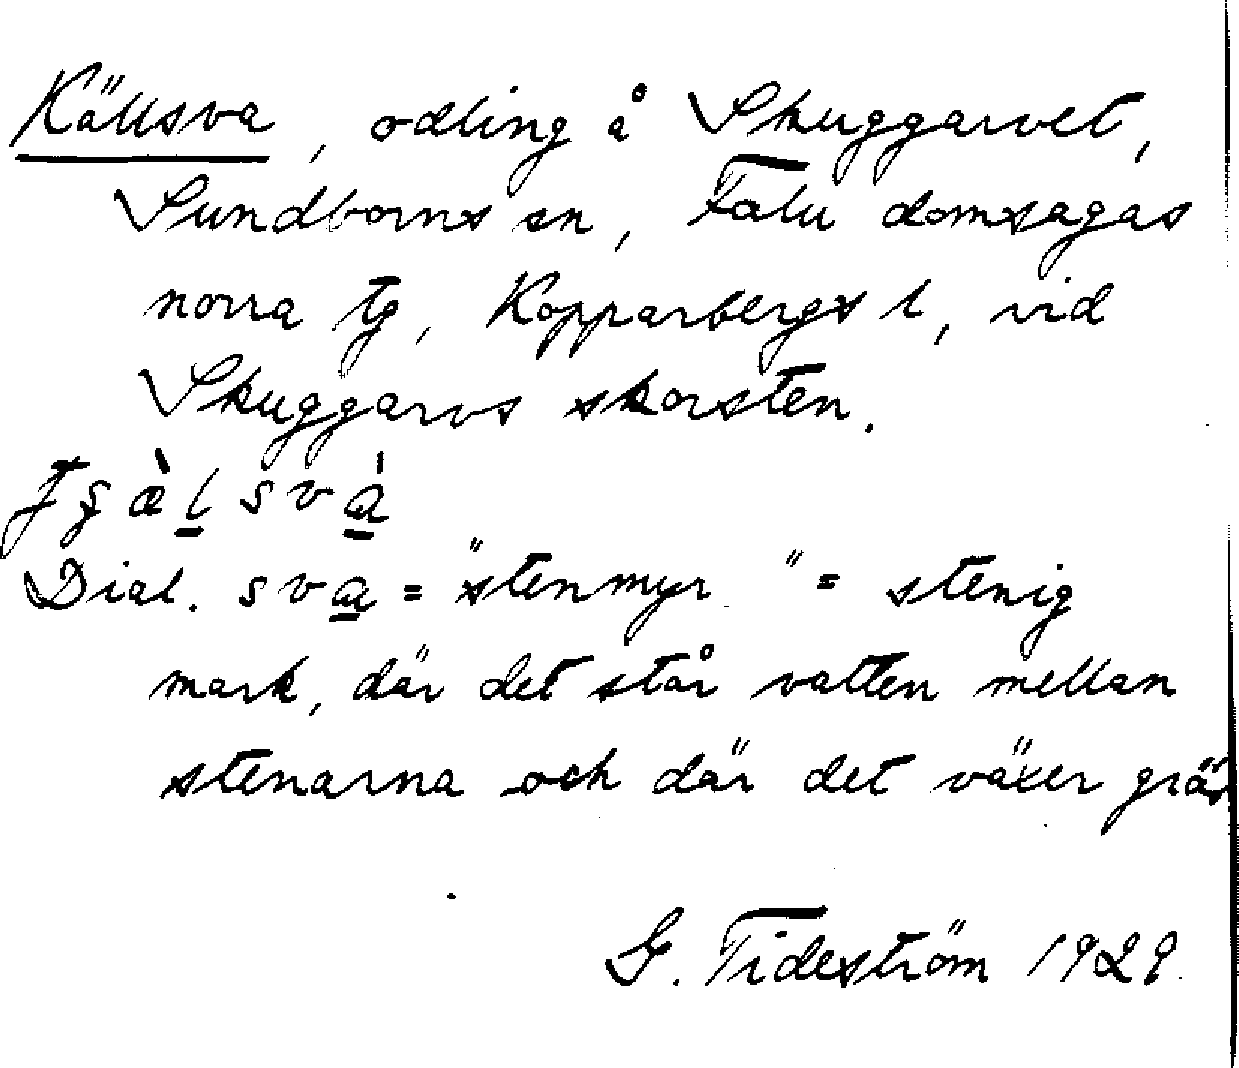 Källsva, odling å Skuggarvet,
Sundborns sn, Falu domsagas
norra tg, Kopparbergs l, vid
Skuggarvs skorsten.
Dial. sva = "stenmyr" = stenig
mark, där det står vatten mellan
stenarna och där det växer gräs
G. Tideström 1929.